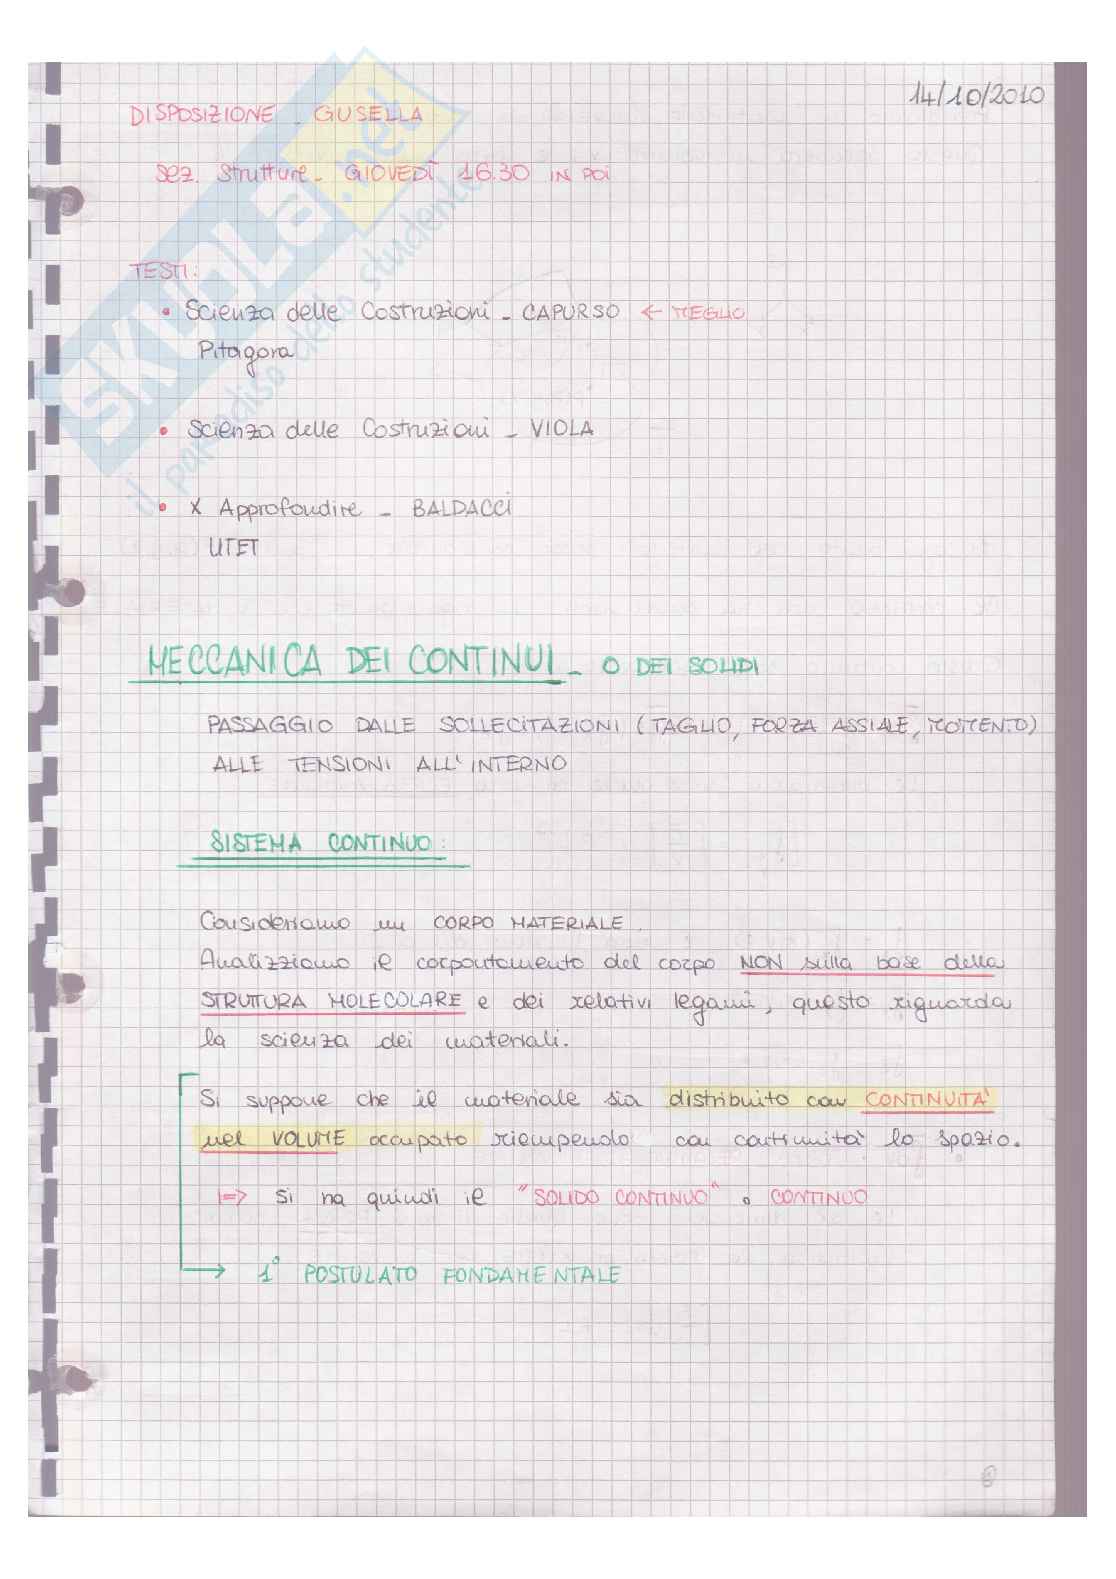 14/10/2010
DISPOSIZIONE - GUSELLA
sez. Strutture - GIOVEDÌ 16.30 IN POI
TESTI:
• Scienza delle Costruzioni - CAPURSO ← MEGLIO
Pitagora
• Scienza delle Costruzioni - VIOLA
• X Approfondire - BALDACCI
UTET
MECCANICA DEI CONTINUI - O DEI SOLIDI
PASSAGGIO DALLE SOLLECITAZIONI (TAGLIO, FORZA ASSIALE, MOMENTO)
ALLE TENSIONI ALL'INTERNO
SISTEMA CONTINUO:
Consideriamo un CORPO MATERIALE.
Analizziamo il comportamento del corpo NON sulla base della
STRUTTURA MOLECOLARE e dei relativi legami, questo riguarda
la scienza dei materiali.
Si suppone che il materiale sia distribuito con CONTINUITA'
nel VOLUME occupato riempendo con continuità lo spazio.
|=> Si ha quindi il "SOLIDO CONTINUO" o CONTINUO
→ 1° POSTULATO FONDAMENTALE
SKUOLA.net
il paradiso dello studente